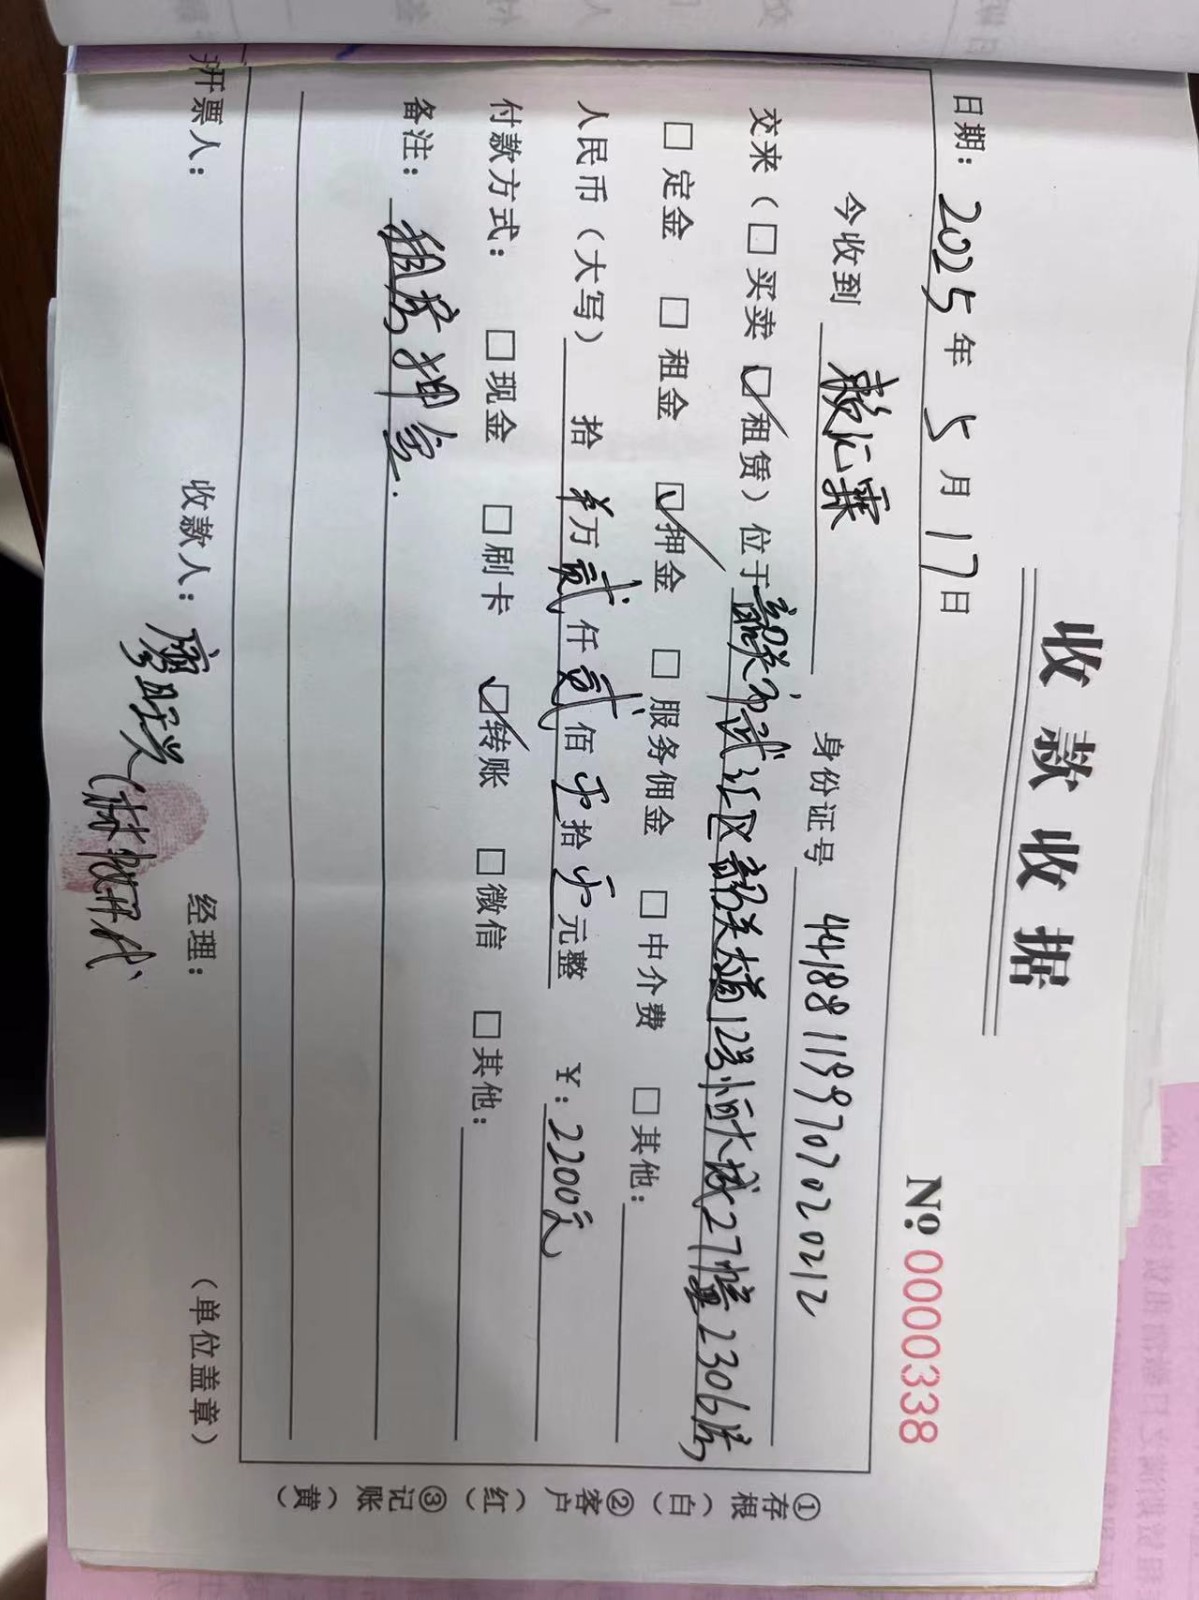 收款收据
№ 0000338
日期：2025年5月17日
今收到 赖汇霖 身份证号 441881199707020212
交来（□买卖 ☑租赁）位于韶关市武江区韶关大道12号恒大城27幢2306房
□定金 □租金 ☑押金 □服务佣金 □中介费 □其他：
人民币（大写） 拾 万贰仟贰佰零拾零元整 ¥：2200元
付款方式：□现金 □刷卡 ☑转账 □微信 □其他：
备注：租房押金.
开票人： 收款人：廖 兴（林 代） 经理： （单位盖章）
①存根（白） ②客户（红） ③记账（黄）